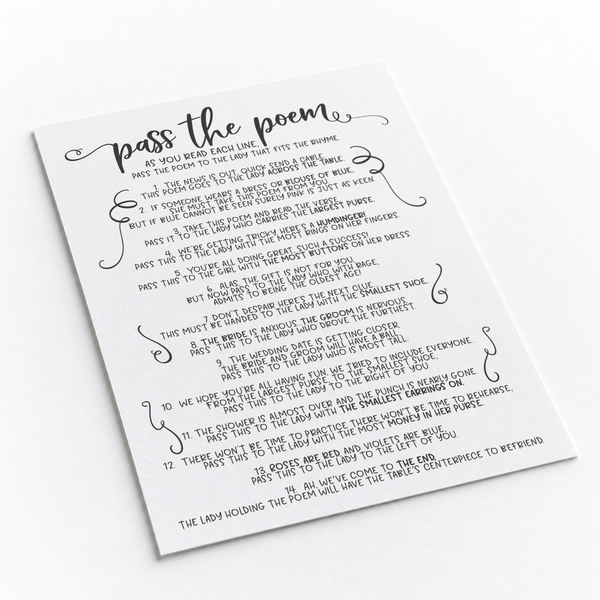 pass the poem
AS YOU READ EACH LINE,
PASS THE POEM TO THE LADY THAT FITS THE RHYME.
1. THE NEWS IS OUT, QUICK SEND A CABLE,
THIS POEM GOES TO THE LADY ACROSS THE TABLE.
2. IF SOMEONE WEARS A DRESS OR BLOUSE OF BLUE,
SHE MUST TAKE THIS POEM FROM YOU
BUT IF BLUE CANNOT BE SEEN SURELY PINK IS JUST AS KEEN.
3. TAKE THIS POEM AND READ THE VERSE
PASS IT TO THE LADY WHO CARRIES THE LARGEST PURSE.
4. WE'RE GETTING TRICKY HERE'S A HUMDINGER!
PASS THIS TO THE LADY WITH THE MOST RINGS ON HER FINGERS.
5. YOU'RE ALL DOING GREAT, SUCH A SUCCESS!
PASS THIS TO THE GIRL WITH THE MOST BUTTONS ON HER DRESS
6. ALAS, THE GIFT IS NOT FOR YOU
BUT NOW PASS TO THE LADY WHO WITH RAGE,
ADMITS TO BEING THE OLDEST AGE!
7. DON'T DESPAIR HERE'S THE NEXT CLUE
THIS MUST BE HANDED TO THE LADY WITH THE SMALLEST SHOE.
8. THE BRIDE IS ANXIOUS THE GROOM IS NERVOUS
PASS THIS TO THE LADY WHO DROVE THE FURTHEST.
9. THE WEDDING DATE IS GETTING CLOSER
THE BRIDE AND GROOM WILL HAVE A BALL
PASS THIS TO THE LADY WHO IS MOST TALL.
10. WE HOPE YOU'RE ALL HAVING FUN, WE TRIED TO INCLUDE EVERYONE.
FROM THE LARGEST PURSE, TO THE SMALLEST SHOE,
PASS THIS TO THE LADY TO THE RIGHT OF YOU.
11. THE SHOWER IS ALMOST OVER AND THE PUNCH IS NEARLY GONE.
PASS THIS TO THE LADY WITH THE SMALLEST EARRINGS ON.
12. THERE WON'T BE TIME TO PRACTICE THERE WON'T BE TIME TO REHEARSE,
PASS THIS TO THE LADY WITH THE MOST MONEY IN HER PURSE.
13. ROSES ARE RED AND VIOLETS ARE BLUE,
PASS THIS TO THE LADY TO THE LEFT OF YOU.
14. AH, WE'VE COME TO THE END.
THE LADY HOLDING THE POEM WILL HAVE THE TABLE'S CENTERPIECE TO BEFRIEND.